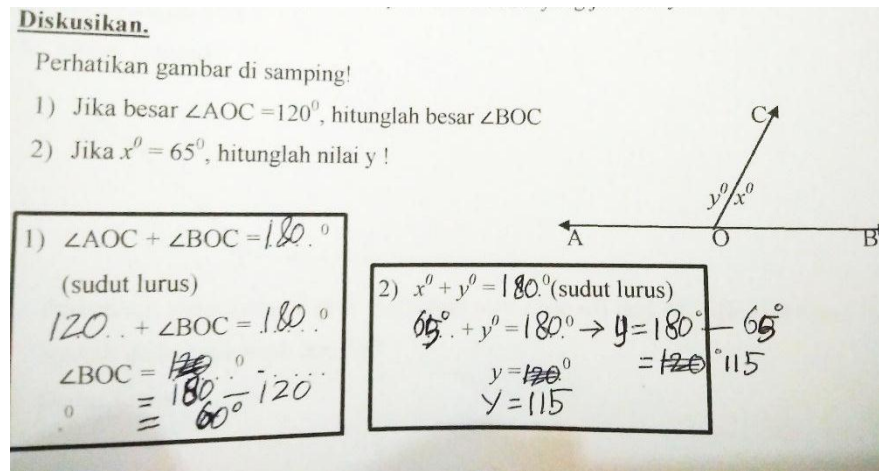 Diskusikan.
Perhatikan gambar di samping!
1) Jika besar ∠AOC =120⁰, hitunglah besar ∠BOC
2) Jika x⁰ = 65⁰, hitunglah nilai y !
C
y⁰ x⁰
A O B
1) ∠AOC + ∠BOC = 180.⁰
(sudut lurus)
120.. + ∠BOC = 180.⁰
∠BOC = ...⁰ - ....
= 180 - 120
⁰ = 60⁰
2) x⁰ + y⁰ = 180.⁰ (sudut lurus)
65⁰. + y⁰ = 180.⁰ → y = 180⁰ - 65⁰
y = 120⁰ = 120⁰ 115
y = 115